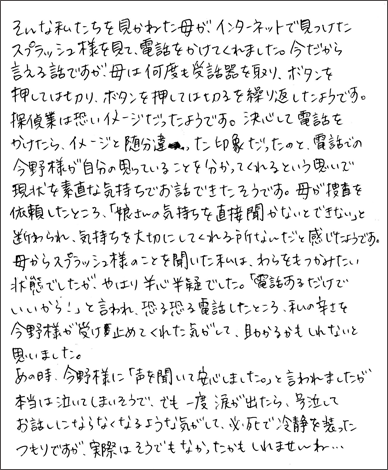 そんな私たちを見かねた母が、インターネットで見つけた
スプラッシュ様を見て、電話をかけてくれました。今だから
言える話ですが、母は何度も受話器を取り、ボタンを
押しては切り、ボタンを押しては切るを繰り返したようです。
探偵業は恐いイメージだったようです。決心して電話を
かけたら、イメージと随分違った印象だったのと、電話での
今野様が自分の思っていることを分かってくれるという思いで
現状を素直な気持ちでお話できたそうです。母が捜査を
依頼したところ、「娘さんの気持ちを直接聞かないとできない」と
断わられ、気持ちを大切にしてくれる所なんだと感じたようです。
母からスプラッシュ様のことを聞いた私は、わらをもつかみたい
状態でしたが、やはり半心半疑でした。「電話するだけで
いいから!」と言われ、恐る恐る電話したところ、私の辛さを
今野様が受け止めてくれた気がして、助かるかもしれないと
思いました。
あの時、今野様に「声を聞いて安心しました。」と言われましたが
本当は泣いてしまいそうで、でも一度涙が出たら、号泣して
お話しにならなくなるような気がして、必死で冷静を装った
つもりですが、実際はそうでもなかったかもしれませんね…